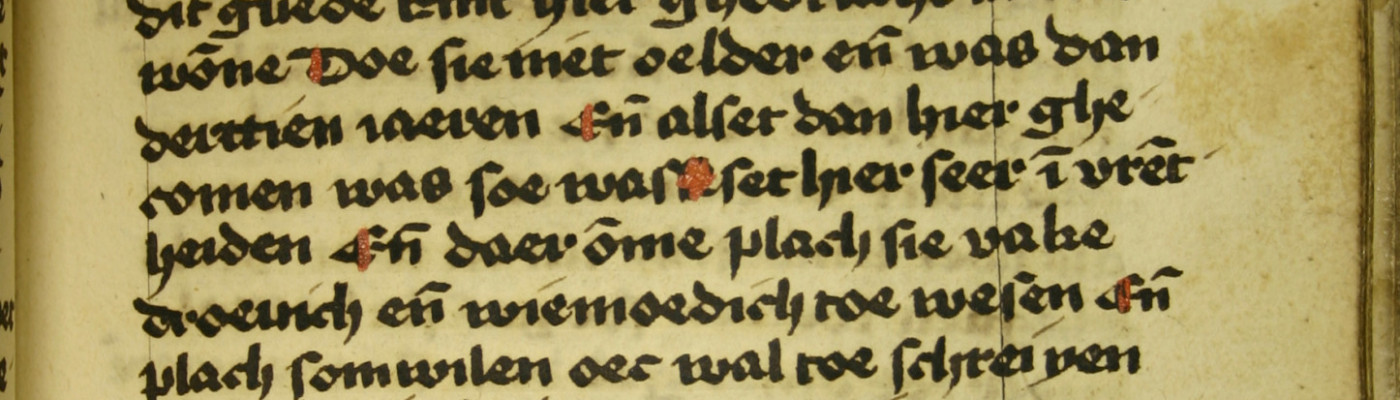 dit guede kint hier ghebracht
wōne Doe sie niet oelder en̄ was dan
derttien iaeren En̄ alset dan hier ghe
comen was soe was set hier seer ī vrēt
heiden En̄ daer ōme plach sie vake
droeuich en̄ wiemoedich toe wesen En̄
plach somwilen oec wal toe schreiyen